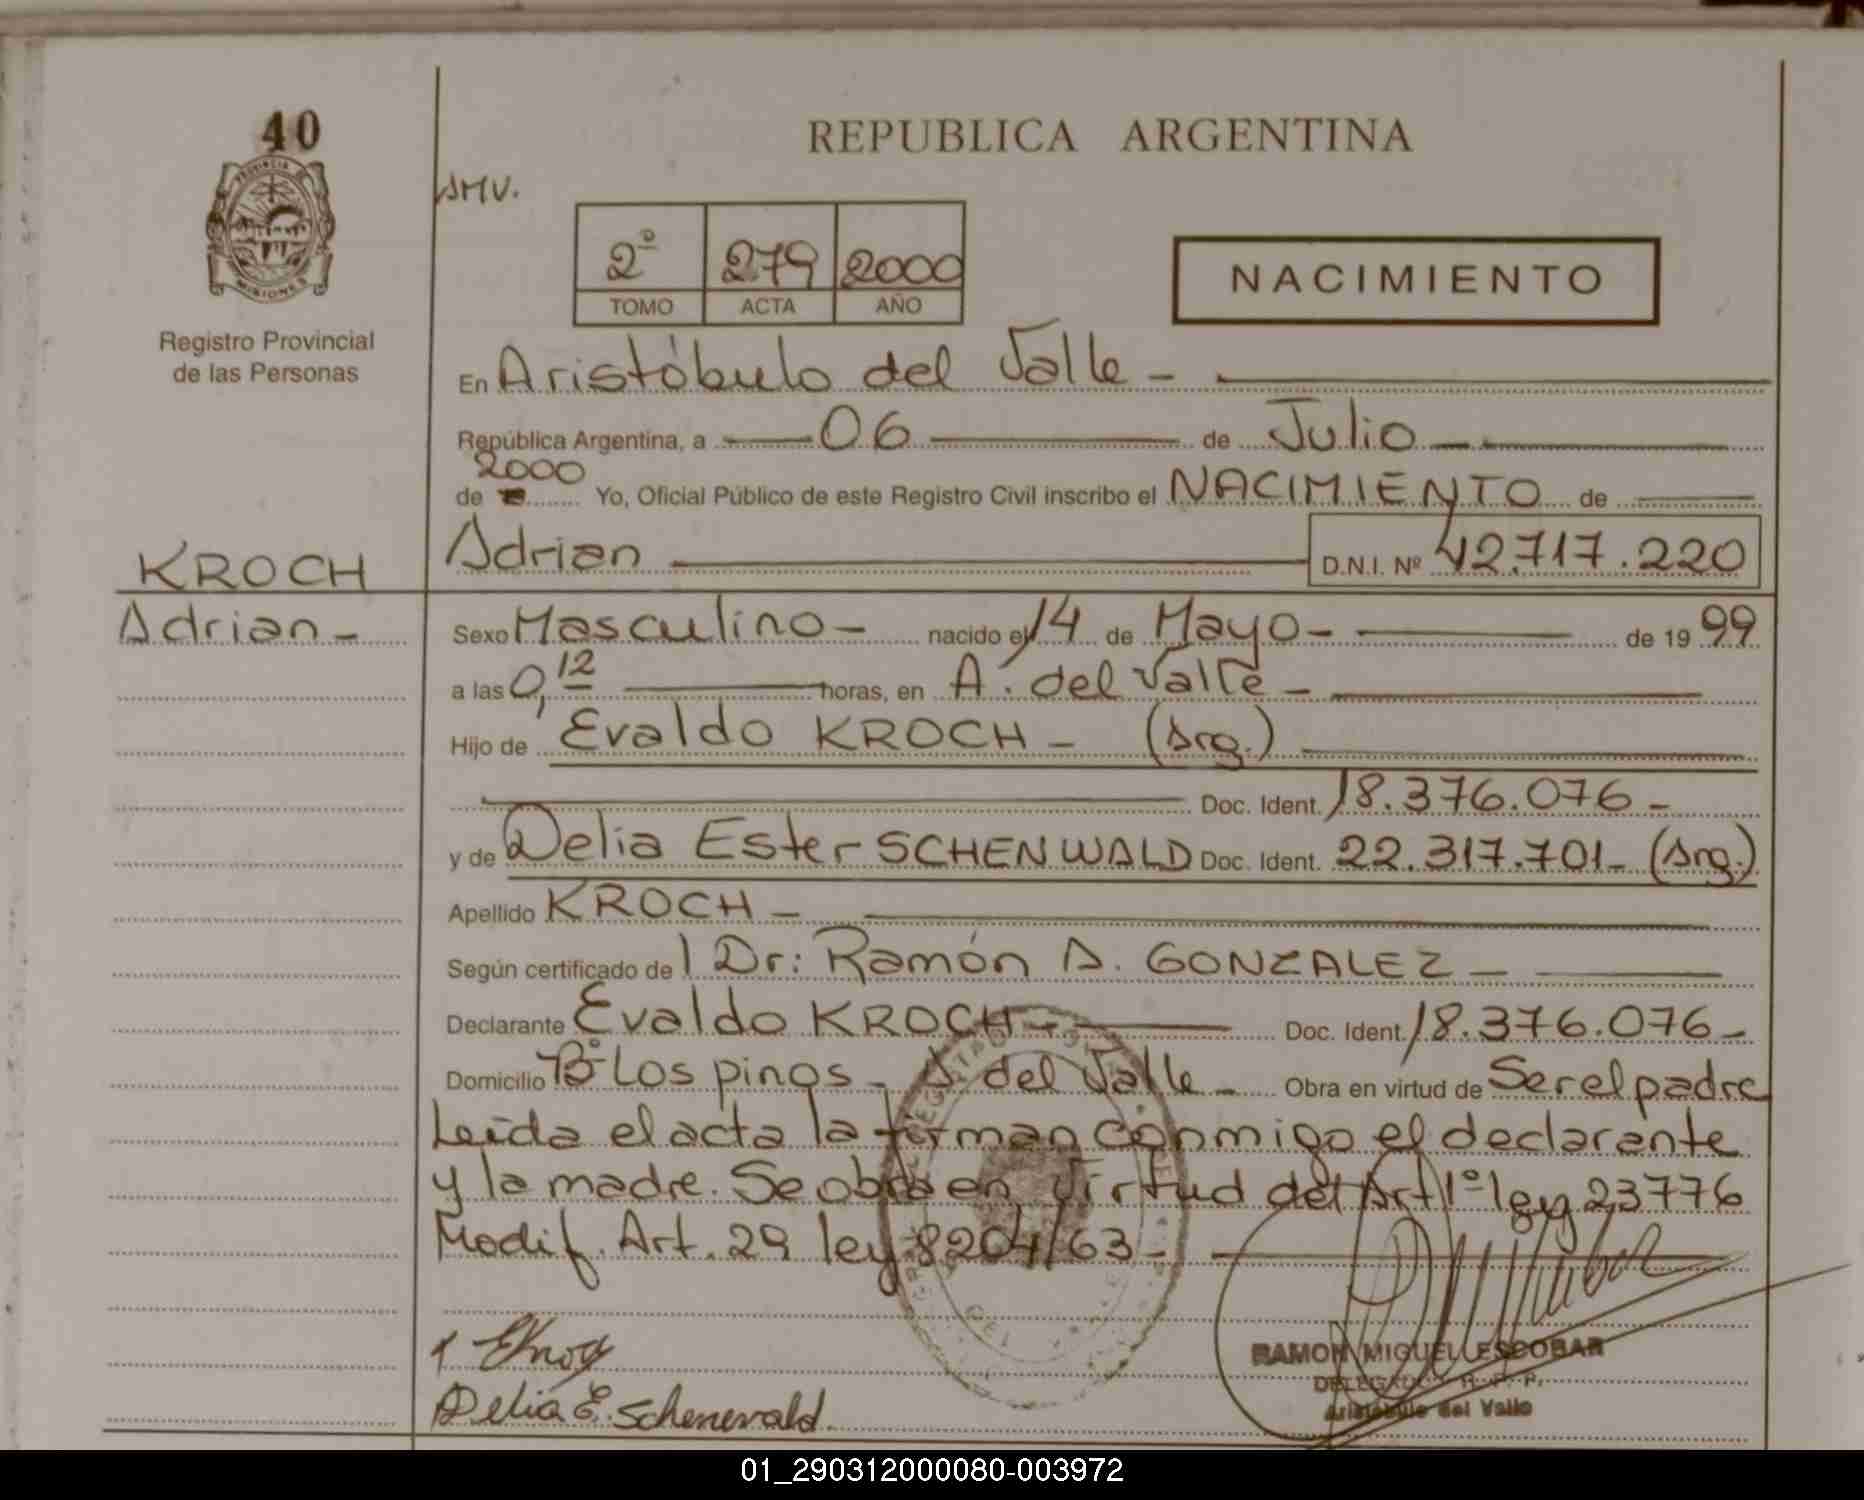 40
PROVINCIA DE
MISIONES
Registro Provincial
de las Personas
REPUBLICA ARGENTINA
AMV.
2º 279 2000
TOMO ACTA AÑO
NACIMIENTO
En Aristóbulo del Valle -
República Argentina, a 06 de Julio
2000
de Yo, Oficial Público de este Registro Civil inscribo el NACIMIENTO de
Adrian D.N.I. Nº 42.717.220
KROCH
Adrian -
Sexo Masculino - nacido el 14 de Mayo - de 19 99
a las 0,12 horas, en A. del Valle -
Hijo de Evaldo KROCH - (Arg.)
Doc. Ident. 18.376.076 -
y de Delia Ester SCHENWALD Doc. Ident. 22.317.701 - (Arg.)
Apellido KROCH -
Según certificado de Dr: Ramón A. GONZALEZ -
Declarante Evaldo KROCH - Doc. Ident. 18.376.076 -
Domicilio Bº Los pinos - A. del Valle - Obra en virtud de Ser el padre
Leída el acta la firman conmigo el declarante
y la madre. Se obra en virtud del Art 1º ley 23776
Modif. Art. 29 ley 8204/63 -
Delia E. Schenewald.
RAMON MIGUEL ESCOBAR
DELEGADO R. P. P.
Aristóbulo del Valle
01_290312000080-003972